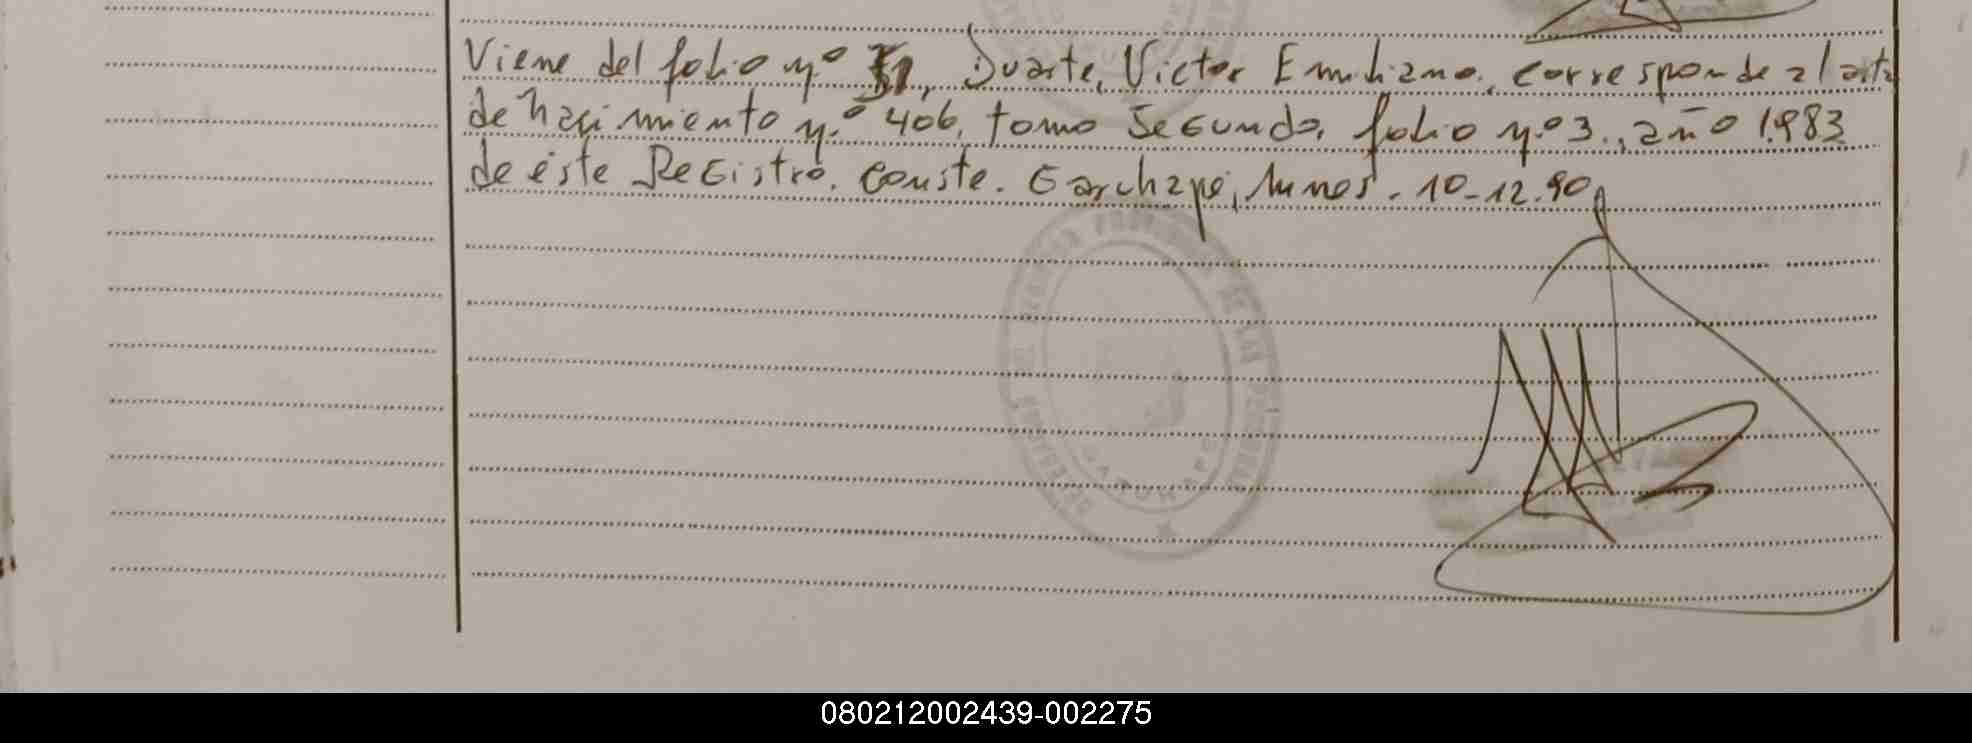 Viene del folio nº 51, Duarte, Victor Emiliano, corresponde al acta
de nacimiento nº 406, tomo Segundo, folio nº 3., año 1983
de éste Registro. Conste. Garuhapé, lunes. 10-12-90
080212002439-002275